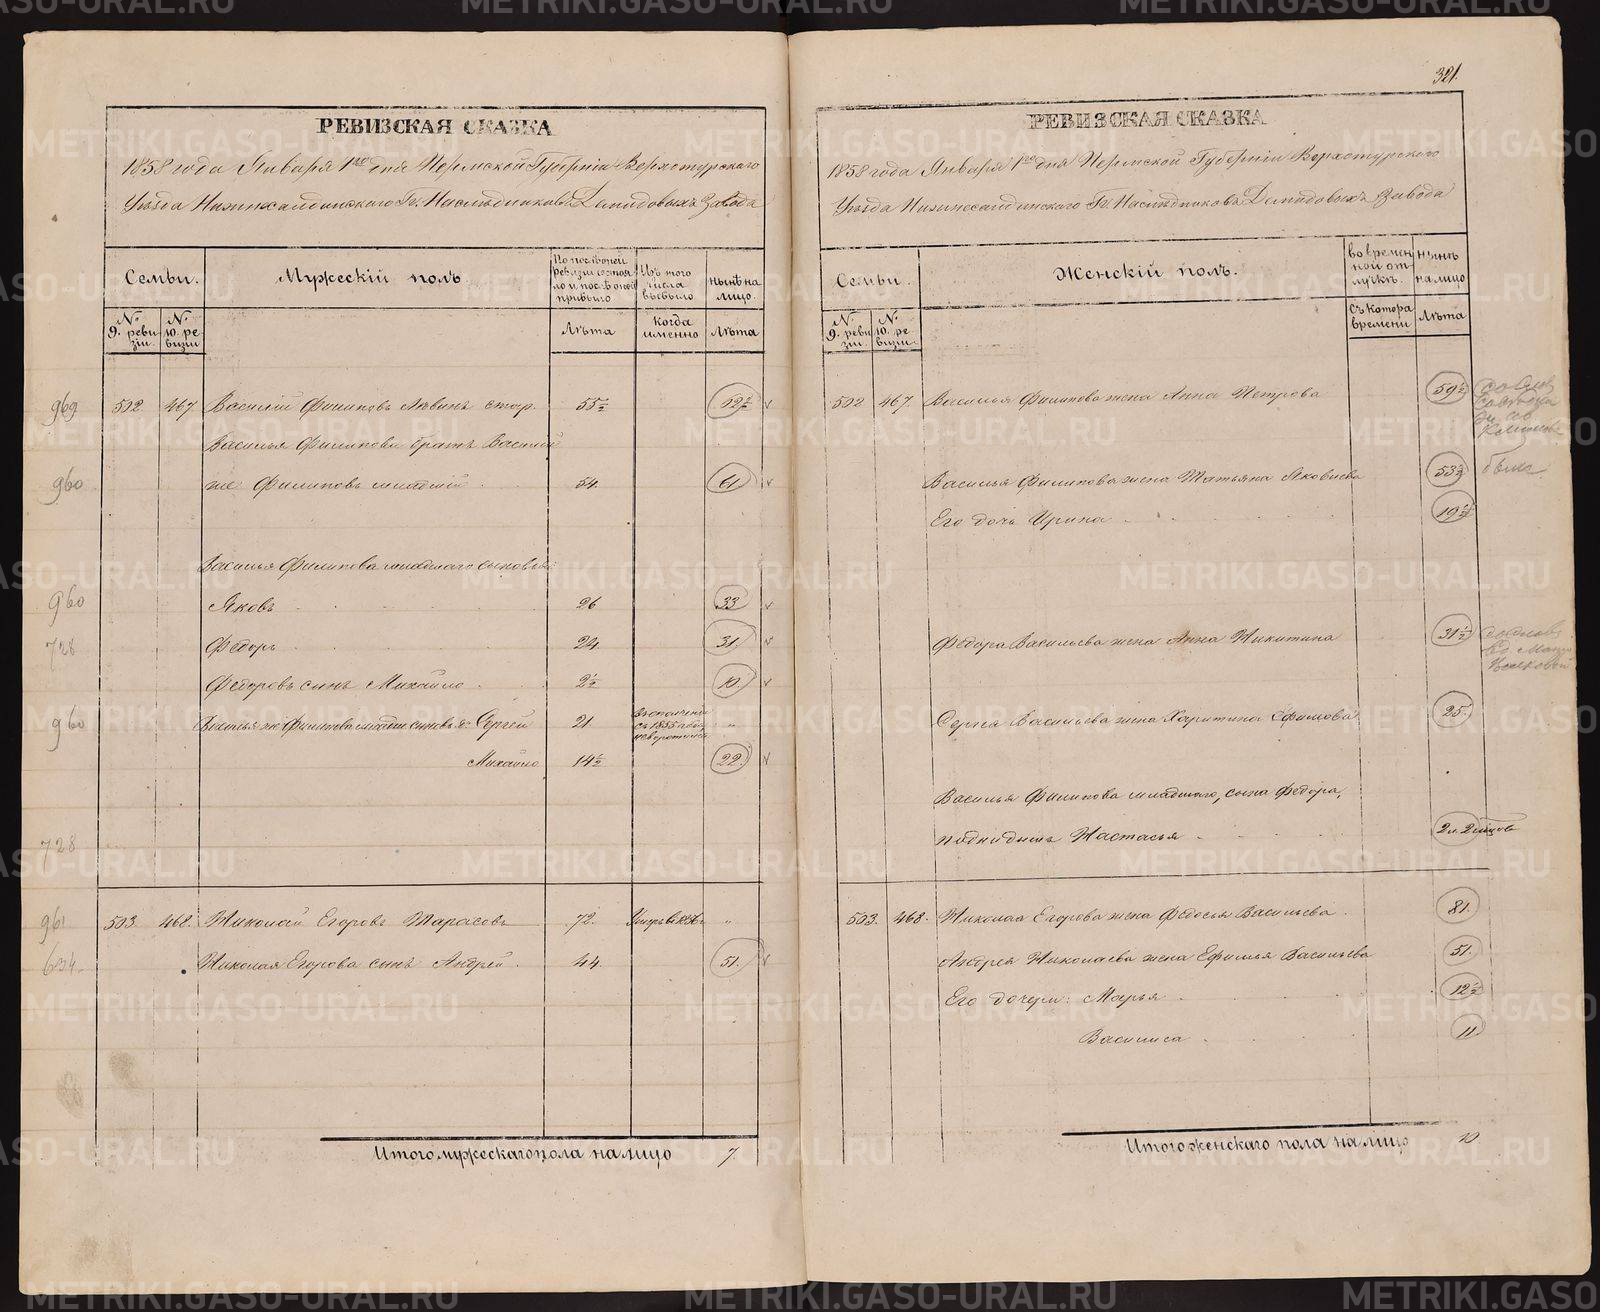 321.
РЕВИЗСКАЯ СКАЗКА
1858 года Января 1го дня Пермской Губерніи Верхотурскаго
Уѣзда Нижнесалдинскаго Гг. Наслѣдниковъ Демидовыхъ Завода
Семьи.
Мужескій полъ.
По послѣдней ревизіи состояло и послѣ оной прибыло
Изъ того числа выбыло
Нынѣ на лицо.
№ 9. ревизіи.
№ 10. ревизіи
Лѣта
Когда именно
Лѣта
969 502 467 Василій Филиповъ стар. 55½
Василья Филипова братъ Василій
960 же Филиповъ младшій 54 61
Василья Филипова младшаго сыновья
960 Яковъ 26 33
728 Федоръ 24 31
Федоровъ сынъ Михайло 2½ 10
960 Василья же Филипова младш. сыновья Сергей 21 с 1855 года
Михайло 14½ 22
728
961 503. 468. Николай Егоровъ Тарасовъ 72. "
634 Николая Егорова сынъ Андрей. 44. 51.
Итого мужескаго пола на лицо 7
РЕВИЗСКАЯ СКАЗКА
1858 года Января 1го дня Пермской Губерніи Верхотурскаго
Уѣзда Нижнесалдинскаго Гг. Наслѣдниковъ Демидовыхъ Завода
Семьи.
Женскій полъ.
Во временной отлучкѣ.
Нынѣ на лицо
№ 9. ревизіи.
№ 10. ревизіи.
Съ котора времени
Лѣта
502 467. Василья Филипова жена Анна Петрова
Василья Филипова жена Татьяна Яковлева
Его дочь Ирина 19½
Федора Васильева жена Анна Никитина 31½
Сергея Васильева жена Харитина Ефимова 25
Василья Филипова младшаго, сына Федора,
подкидышъ Настасья
503. 468. Николая Егорова жена Федосья Васильева. 81.
Андрея Николаева жена Ефимья Васильева 51.
Его дочери: Марья 12½
Василиса 11
Итого женскаго пола на лицо 10
METRIKI.GASO-URAL.RU